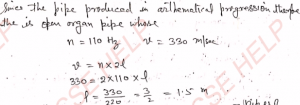 Since the pipe produced in arithematical progression therefore
the is open organ pipe whose
n = 110 Hz v = 330 m/sec
v = n × 2l
330 = 2 × 110 × l
l = 330/220 = 3/2 = 1.5 m